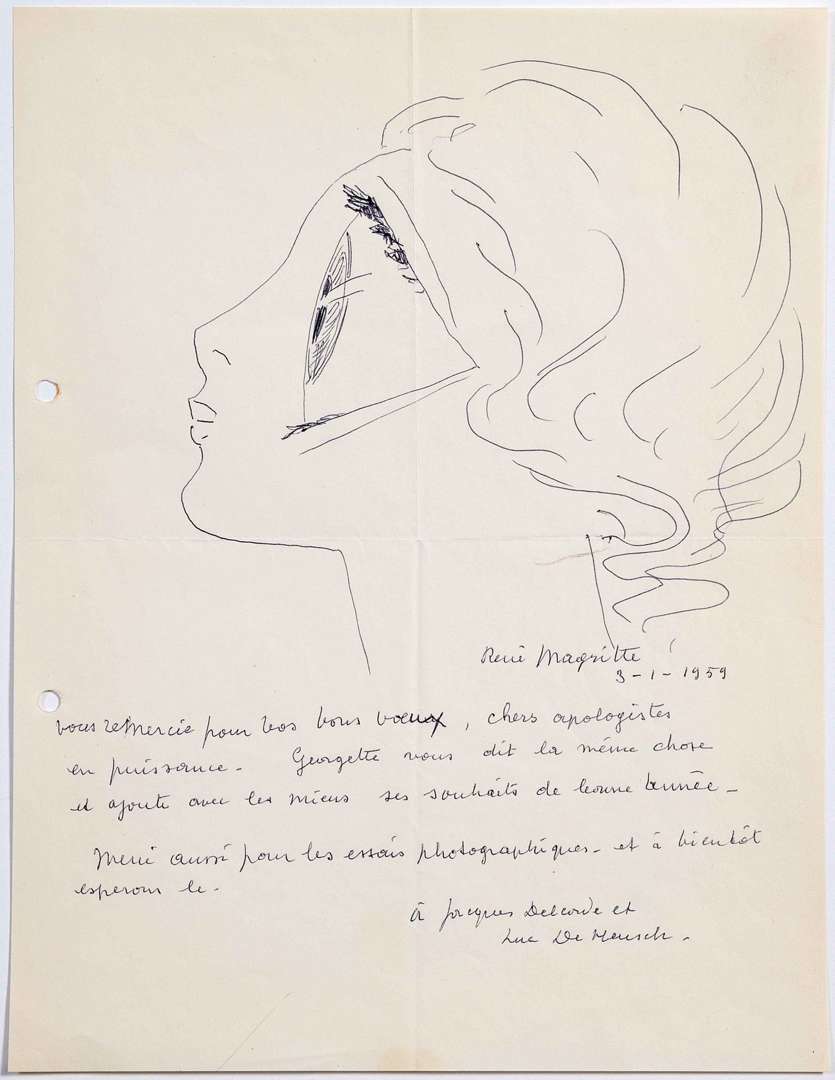 René Magritte
3-1-1959
vous remercie pour vos bons voeux, chers apologistes
en puissance. Georgette vous dit la même chose
et ajoute avec les miens ses souhaits de bonne année -
Merci aussi pour les essais photographiques - et à bientôt
esperons le -
à Jacques Delcorde et
Luc De Heusch -